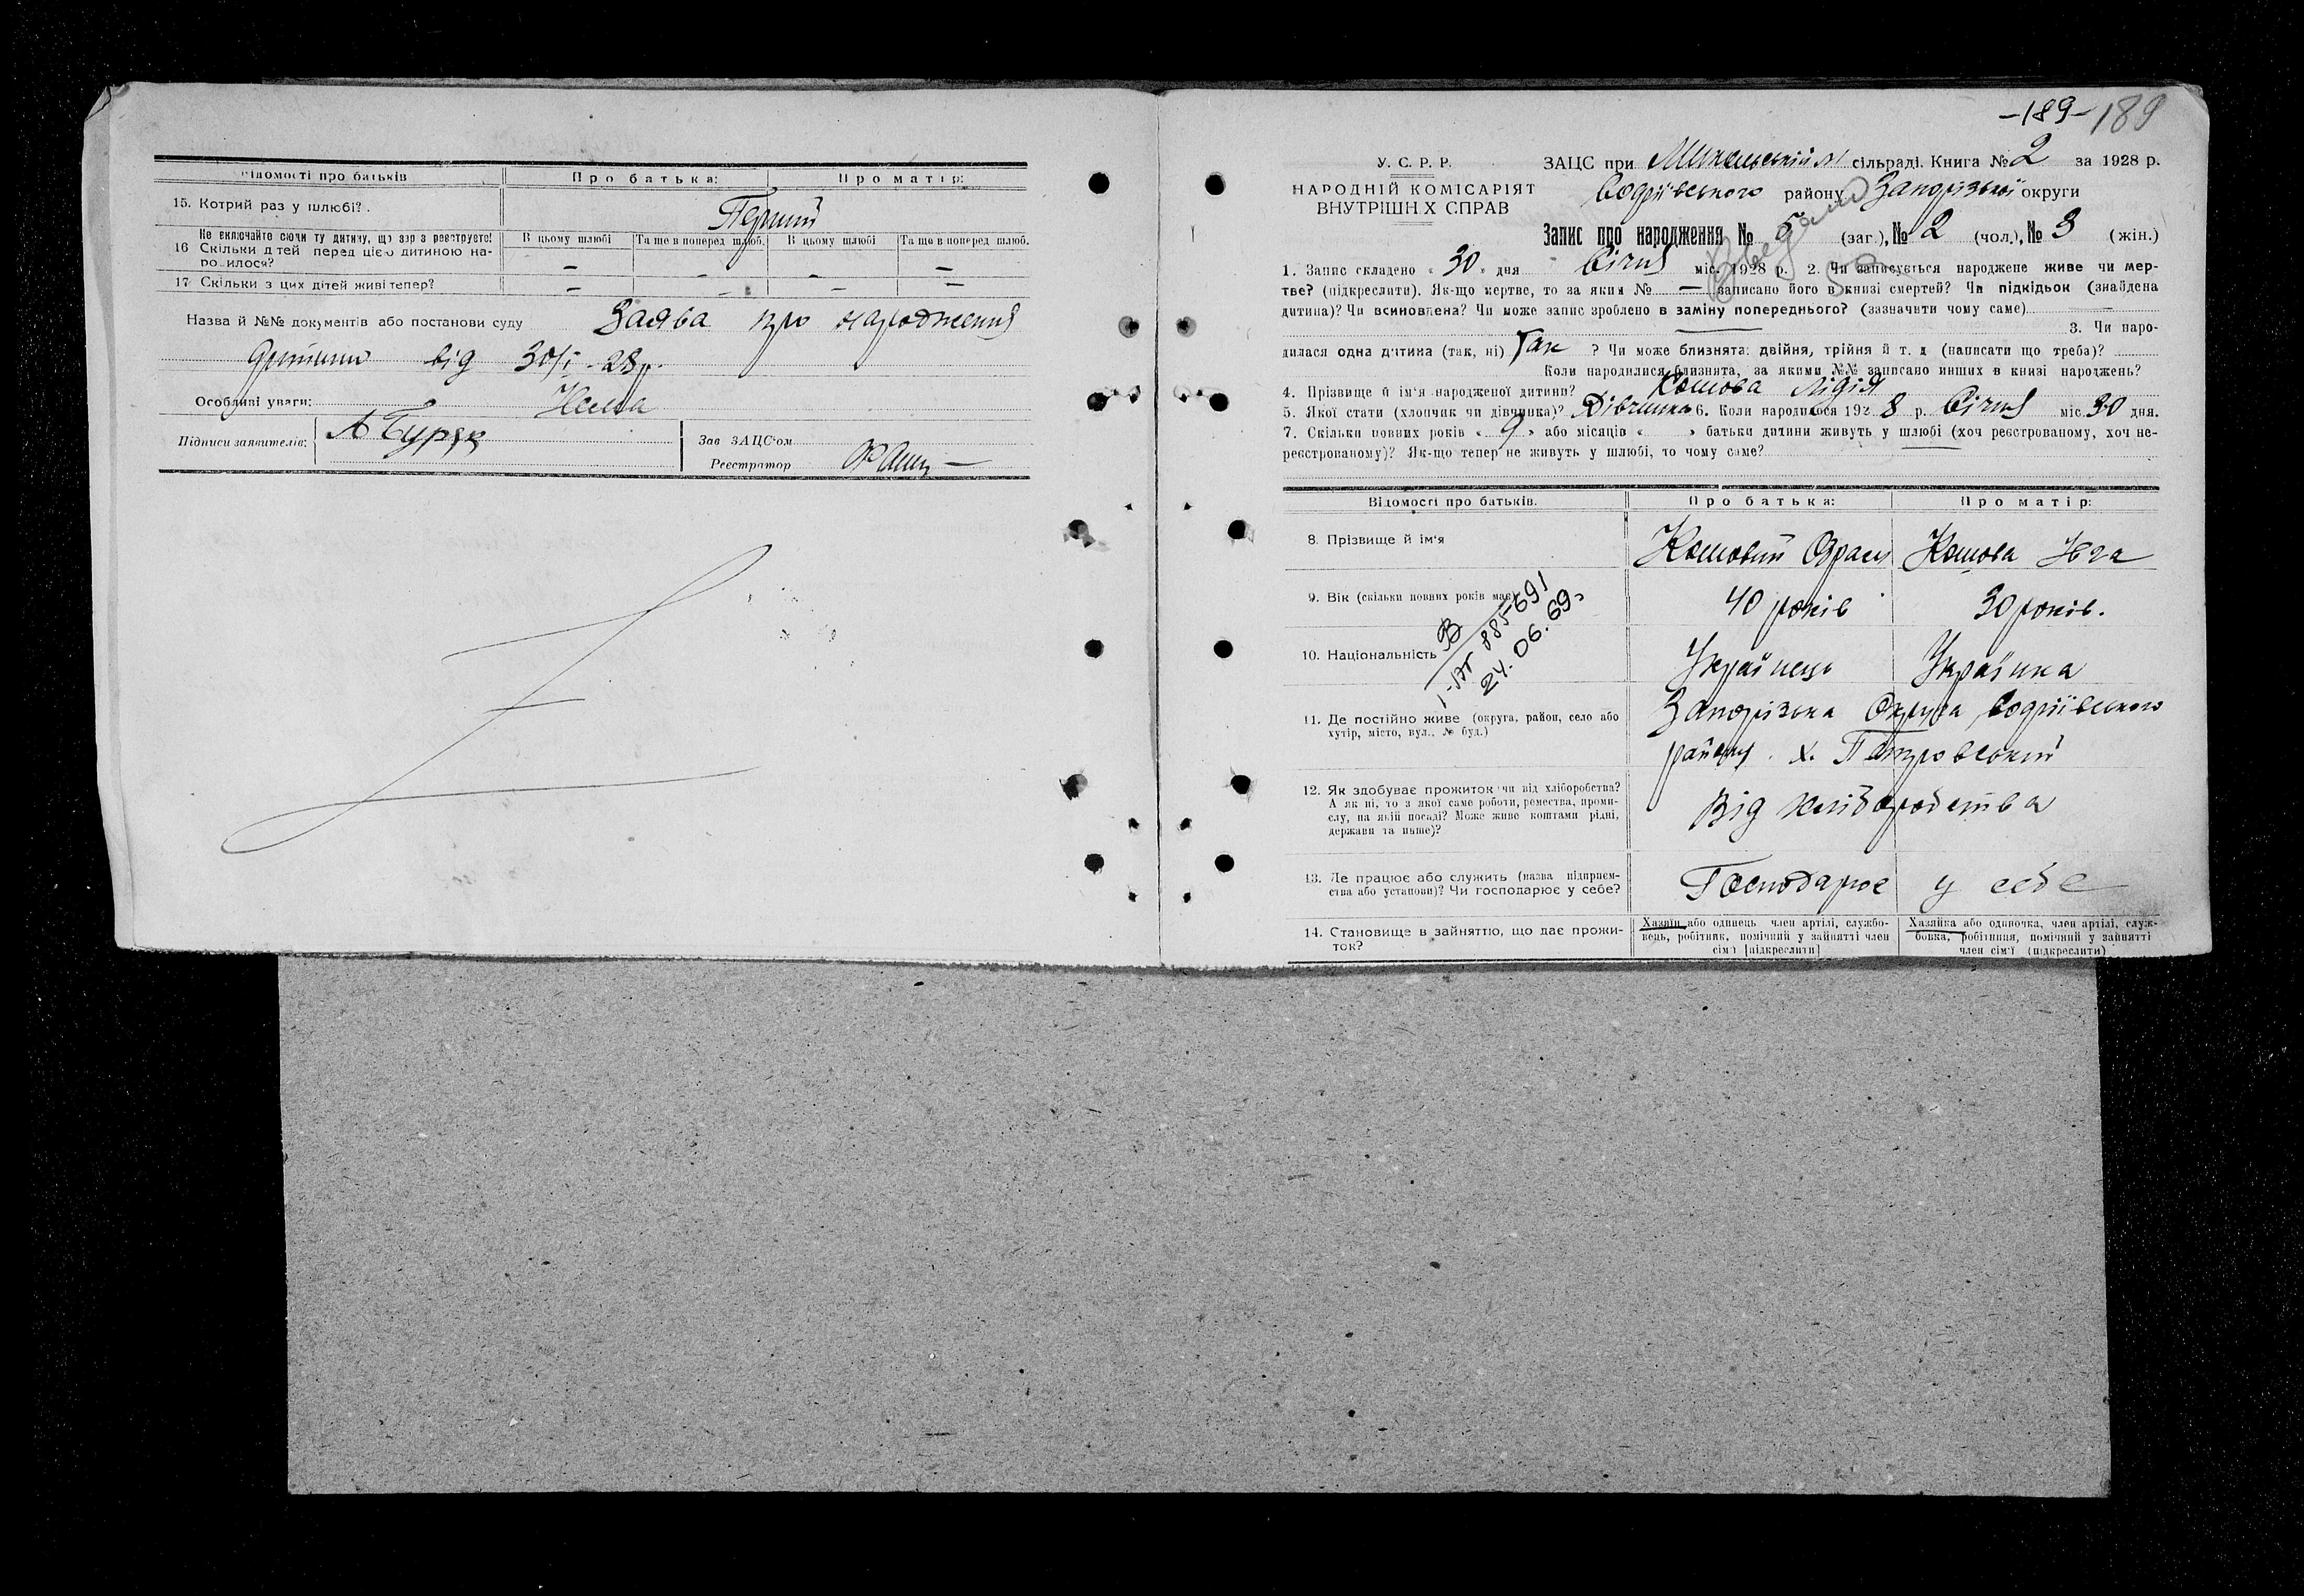 Відомості про батьків
Про батька:
Про матір:
15. Котрий раз у шлюбі?
Перший
Не включайте сюди ту дитину, що зараз реєструєте!
16 Скільки дітей перед цією дитиною на-
родилося?
В цьому шлюбі
Та ще в поперед шлюб.
В цьому шлюбі
Та ще в поперед шлюб.
— — — —
17 Скільки з цих дітей живі тепер?
— — — —
Назва й №№ документів або постанови суду Заява про народження
дитини від 30/I-28р.
Особливі уваги: Нема
Підписи заявителів: А Буряк
Зав ЗАЦС'ом
Реєстратор
-189- 189
У. С. Р. Р.
НАРОДНІЙ КОМІСАРІЯТ
ВНУТРІШНІХ СПРАВ
ЗАЦС при сільраді. Книга № 2 за 1928 р.
району Запорізької округи
Запис про народження № 5 (заг.), № 2 (чол.), № 3 (жін.)
1. Запис складено « 30 » дня Січня міс. 1928 р. 2. Чи записується народжене живе чи мер-
тве? (підкреслити). Як-що мертве, то за яким № — записано його в книзі смертей? Чи підкідьок (знайдена
дитина)? Чи всиновлена? Чи може запис зроблено в заміну попереднього? (зазначити чому саме) —
3. Чи наро-
дилася одна дитина (так, ні) Так ? Чи може близнята: двійня, трійня й т. д (написати що треба)?
Коли народилися близнята, за якими №№ записано инших в книзі народжень?
4. Прізвище й ім'я народженої дитини? Кошова Лідія
5. Якої стати (хлопчик чи дівчинка)? Дівчинка 6. Коли народилося 192 8 р. Січня міс. 30 дня.
7. Скільки повних років « 9 » або місяців « » батьки дитини живуть у шлюбі (хоч реєстрованому, хоч не-
реєстрованому)? Як-що тепер не живуть у шлюбі, то чому саме?
Відомості про батьків.
Про батька:
Про матір:
8. Прізвище й ім'я
Кошовий
Кошова
9. Вік (скільки повних років має)
40 років
30 років.
885691
24.06.69
10. Національність
Українець
Українка
11. Де постійно живе (округа, район, село або
хутір, місто, вул., № буд.)
Запорізька Округа,
району х. Петровський
12. Як здобуває прожиток чи від хліборобства?
А як ні, то з якої саме роботи, ремества, проми-
слу, на якій посаді? Може живе коштами рідні,
держави та инше)?
Від хліборобства
13. Де працює або служить (назва підприєм-
ства або установи)? Чи господарює у себе?
Господарює у себе
14. Становище в зайняттю, що дає прожи-
ток?
Хазяїн або одинець член артілі, службо-
вець, робітник, помічний у зайнятті член
сім'ї [підкреслити]
Хазяйка або одиночка, член артілі, служ-
бовка, робітниця, помічний у зайнятті
член сім'ї (підкреслити)